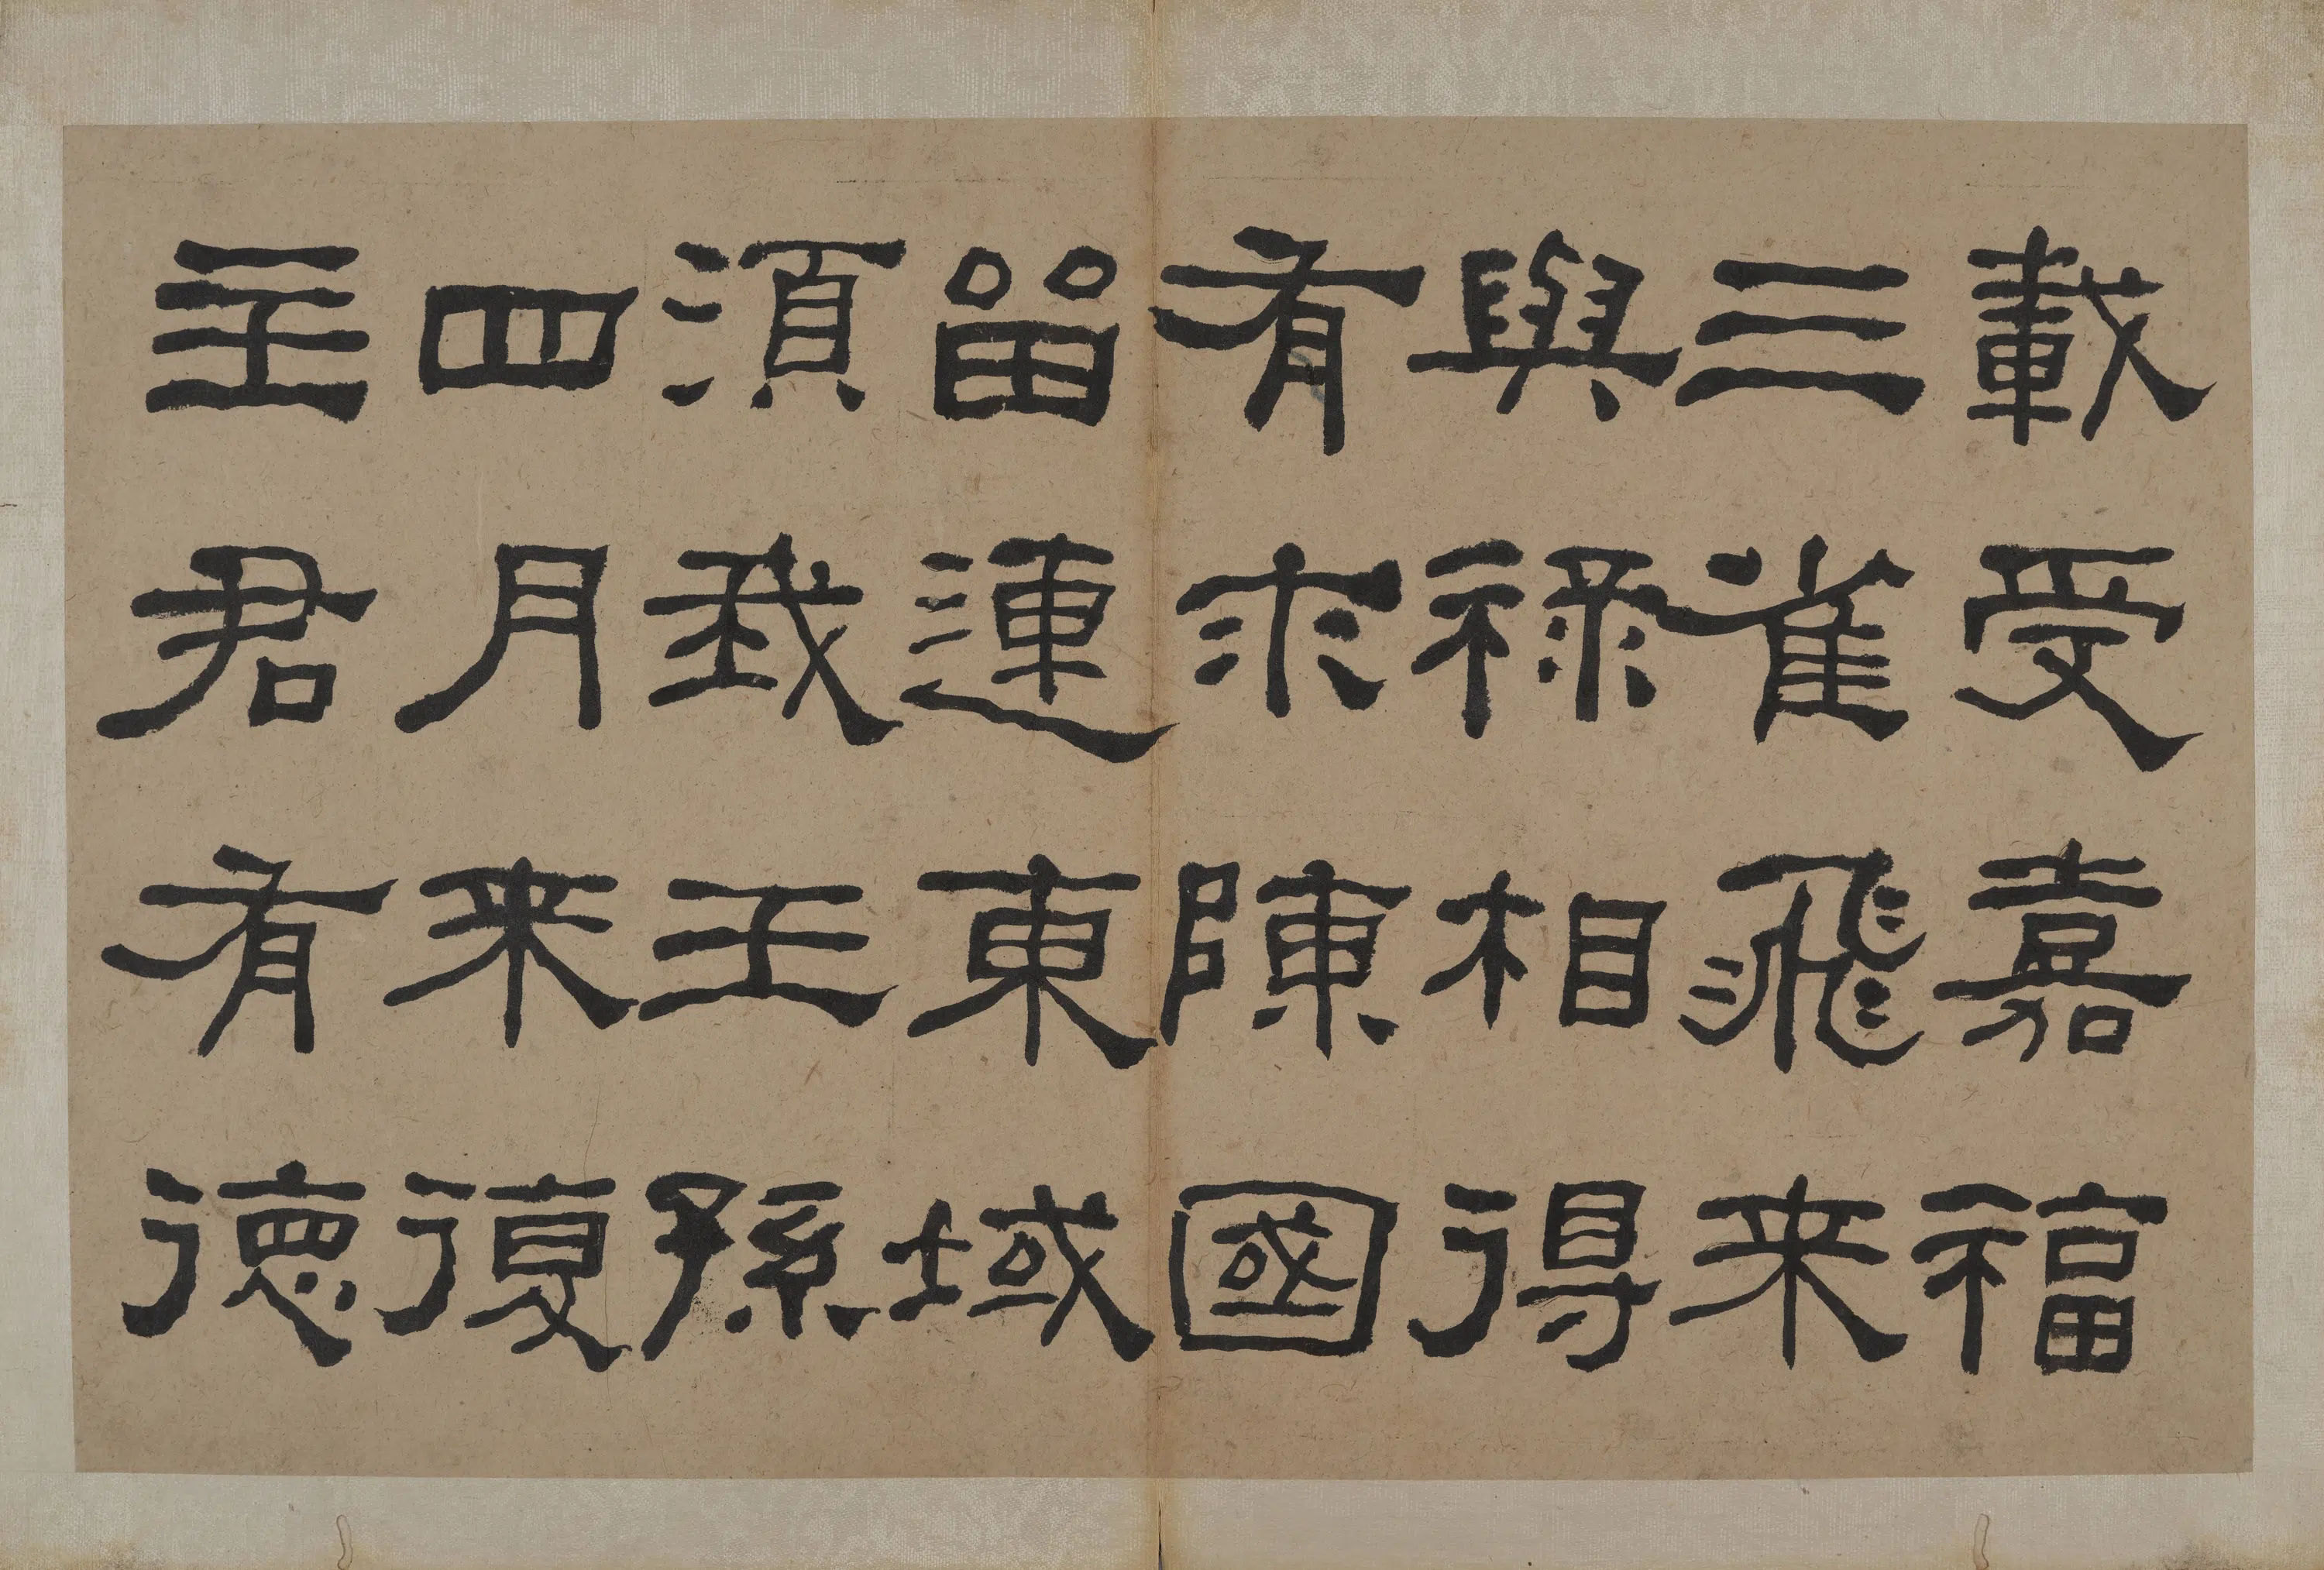 載受嘉福
三雀飛来
與祿相得
有求陳國
留連東域
須我王孫
四月来復
主君有徳